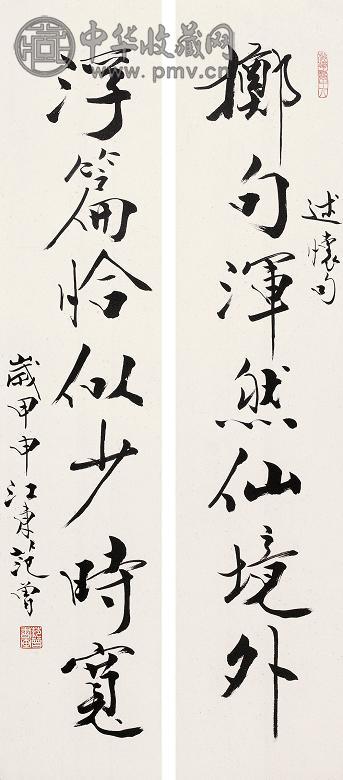 中华收藏网
www.pmv.cn
擲句渾然仙境外
述懷句
浮篇恰似少時寬
歲甲申江東范曾